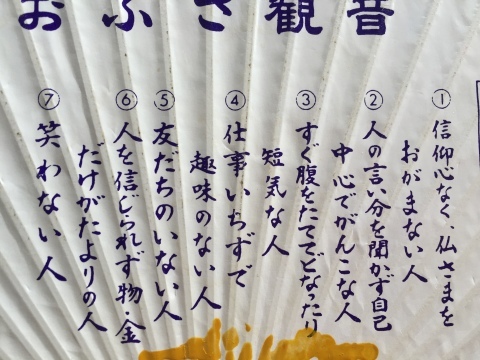 おふさ観音
① 信仰心なく、仏さまを
おがまない人
② 人の言い分を聞かず自己
中心でがんこな人
③ すぐ腹をたててどなったり
短気な人
④ 仕事いちずで
趣味のない人
⑤ 友だちのいない人
⑥ 人を信じられず物・金
だけがたよりの人
⑦ 笑わない人